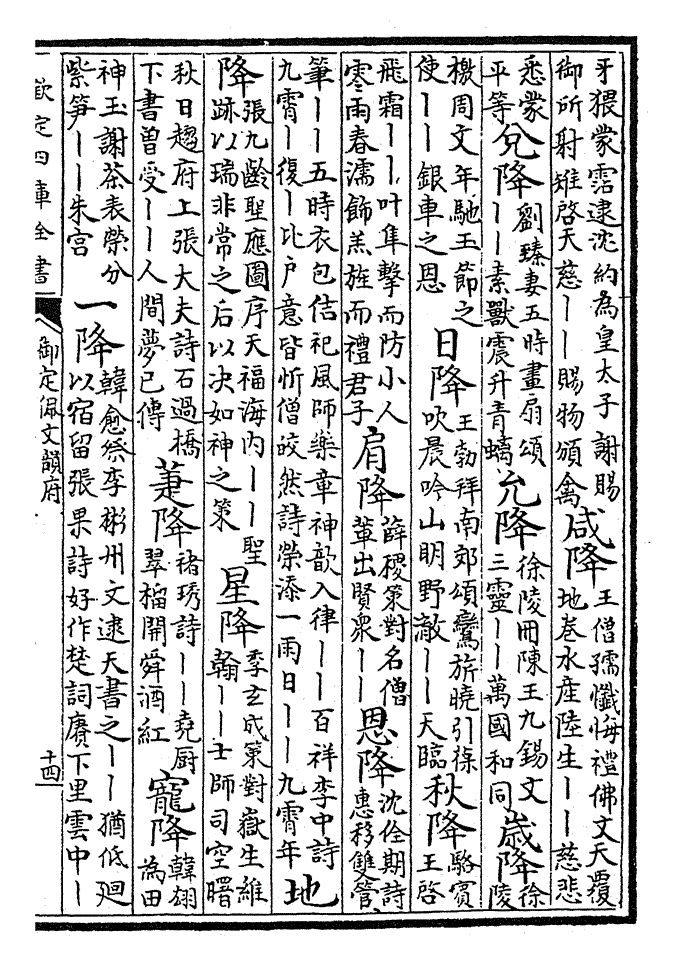 牙猥蒙霑逮沈約為皇太子謝賜
御所射雉啓天慈——賜物頒禽
咸降
王僧孺懺悔禮佛文天覆
地卷水産陸生——慈悲
悉蒙
平等
兌降
劉臻妻五時畫扇頌
——素獸震升青螭
允降
徐陵冊陳王九錫文
三靈——萬國和同
歲降
徐
陵
檄周文年馳玉節之
使——銀車之恩
日降
王勃拜南郊頌鸞旂曉引葆
吹晨吟山明野敞——天臨
秋降
駱賓
王啓
飛霜——叶隼擊而防小人
寒雨春濡飾羔旌而禮君子
肩降
薛稷策對名僧
軰出賢衆——
恩降
沈佺期詩
惠移雙管
筆——五時衣包佶祀風師樂章神歆入律——百祥李中詩
九霄—復—比户意皆忻僧皎然詩榮添一雨日——九霄年
地
降
張九齡聖應圖序天福海内——聖
跡以瑞非常之后以决如神之策
星降
季玄成策對嶽生維
翰——士師司空曙
秋日趨府上張大夫詩石過橋
下書曾受——人間夢已傳
蓂降
褚琇詩——堯厨
翠榴開舜酒紅
寵降
韓翃
為田
神玉謝茶表榮分
紫笋——朱宫
一降
韓愈祭李彬州文逮天書之——猶低廻
以宿留張果詩好作楚詞賡下里雲中—
欽定四庫全書
御定佩文韻府
十四